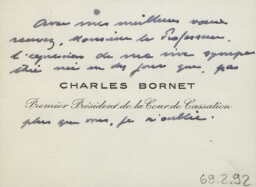 Avec mes meilleurs vœux
recevez, Monsieur le Professeur,
l'expression de ma vive sympa
thie née un des jours que, pas
CHARLES BORNET
Premier Président de la Cour de Cassation
plus que vous, je n'oublie.
69.2.92